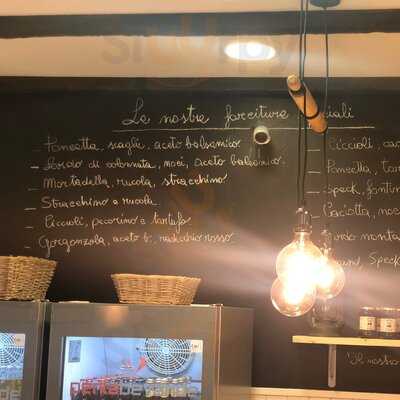 Le nostre farciture speciali
_ Pancetta, scaglie, aceto balsamico
_ Lardo di colonnata, noci, aceto balsamico.
_ Mortadella, rucola, stracchino
_ Stracchino e rucola
_ Ciccioli, pecorino e tartufo
_ Gorgonzola, aceto b., radicchio rosso
_ Ciccioli,
_ Pancetta,
_ Speck,
_ Caciotta, noci
Speck
Il nostro